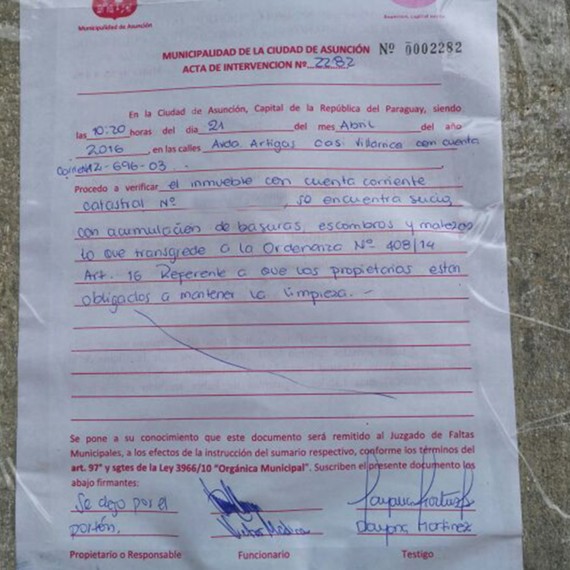 Municipalidad de Asunción
MUNICIPALIDAD DE LA CIUDAD DE ASUNCIÓN Nº 0002282
ACTA DE INTERVENCION Nº 2282
En la Ciudad de Asunción, Capital de la República del Paraguay, siendo
las 10:20 horas del día 21 del mes Abril del año
2016, en las calles Avda. Artigas casi Villarrica con cuenta
12-696-03
Procedo a verificar el inmueble con cuenta corriente
catastral Nº , se encuentra sucio,
con acumulación de basuras, escombros y malezas
lo que transgrede a la Ordenanza Nº 408/14
Art. 16 Referente a que los propietarios estan
obligados a mantener la limpieza. -
Se pone a su conocimiento que este documento será remitido al Juzgado de Faltas
Municipales, a los efectos de la instrucción del sumario respectivo, conforme los términos del
art. 97° y sgtes de la Ley 3966/10 "Orgánica Municipal". Suscriben el presente documento los
abajo firmantes:
Se dejo por el
portón.
Victor Medina
Dayana Martinez
Propietario o Responsable Funcionario Testigo